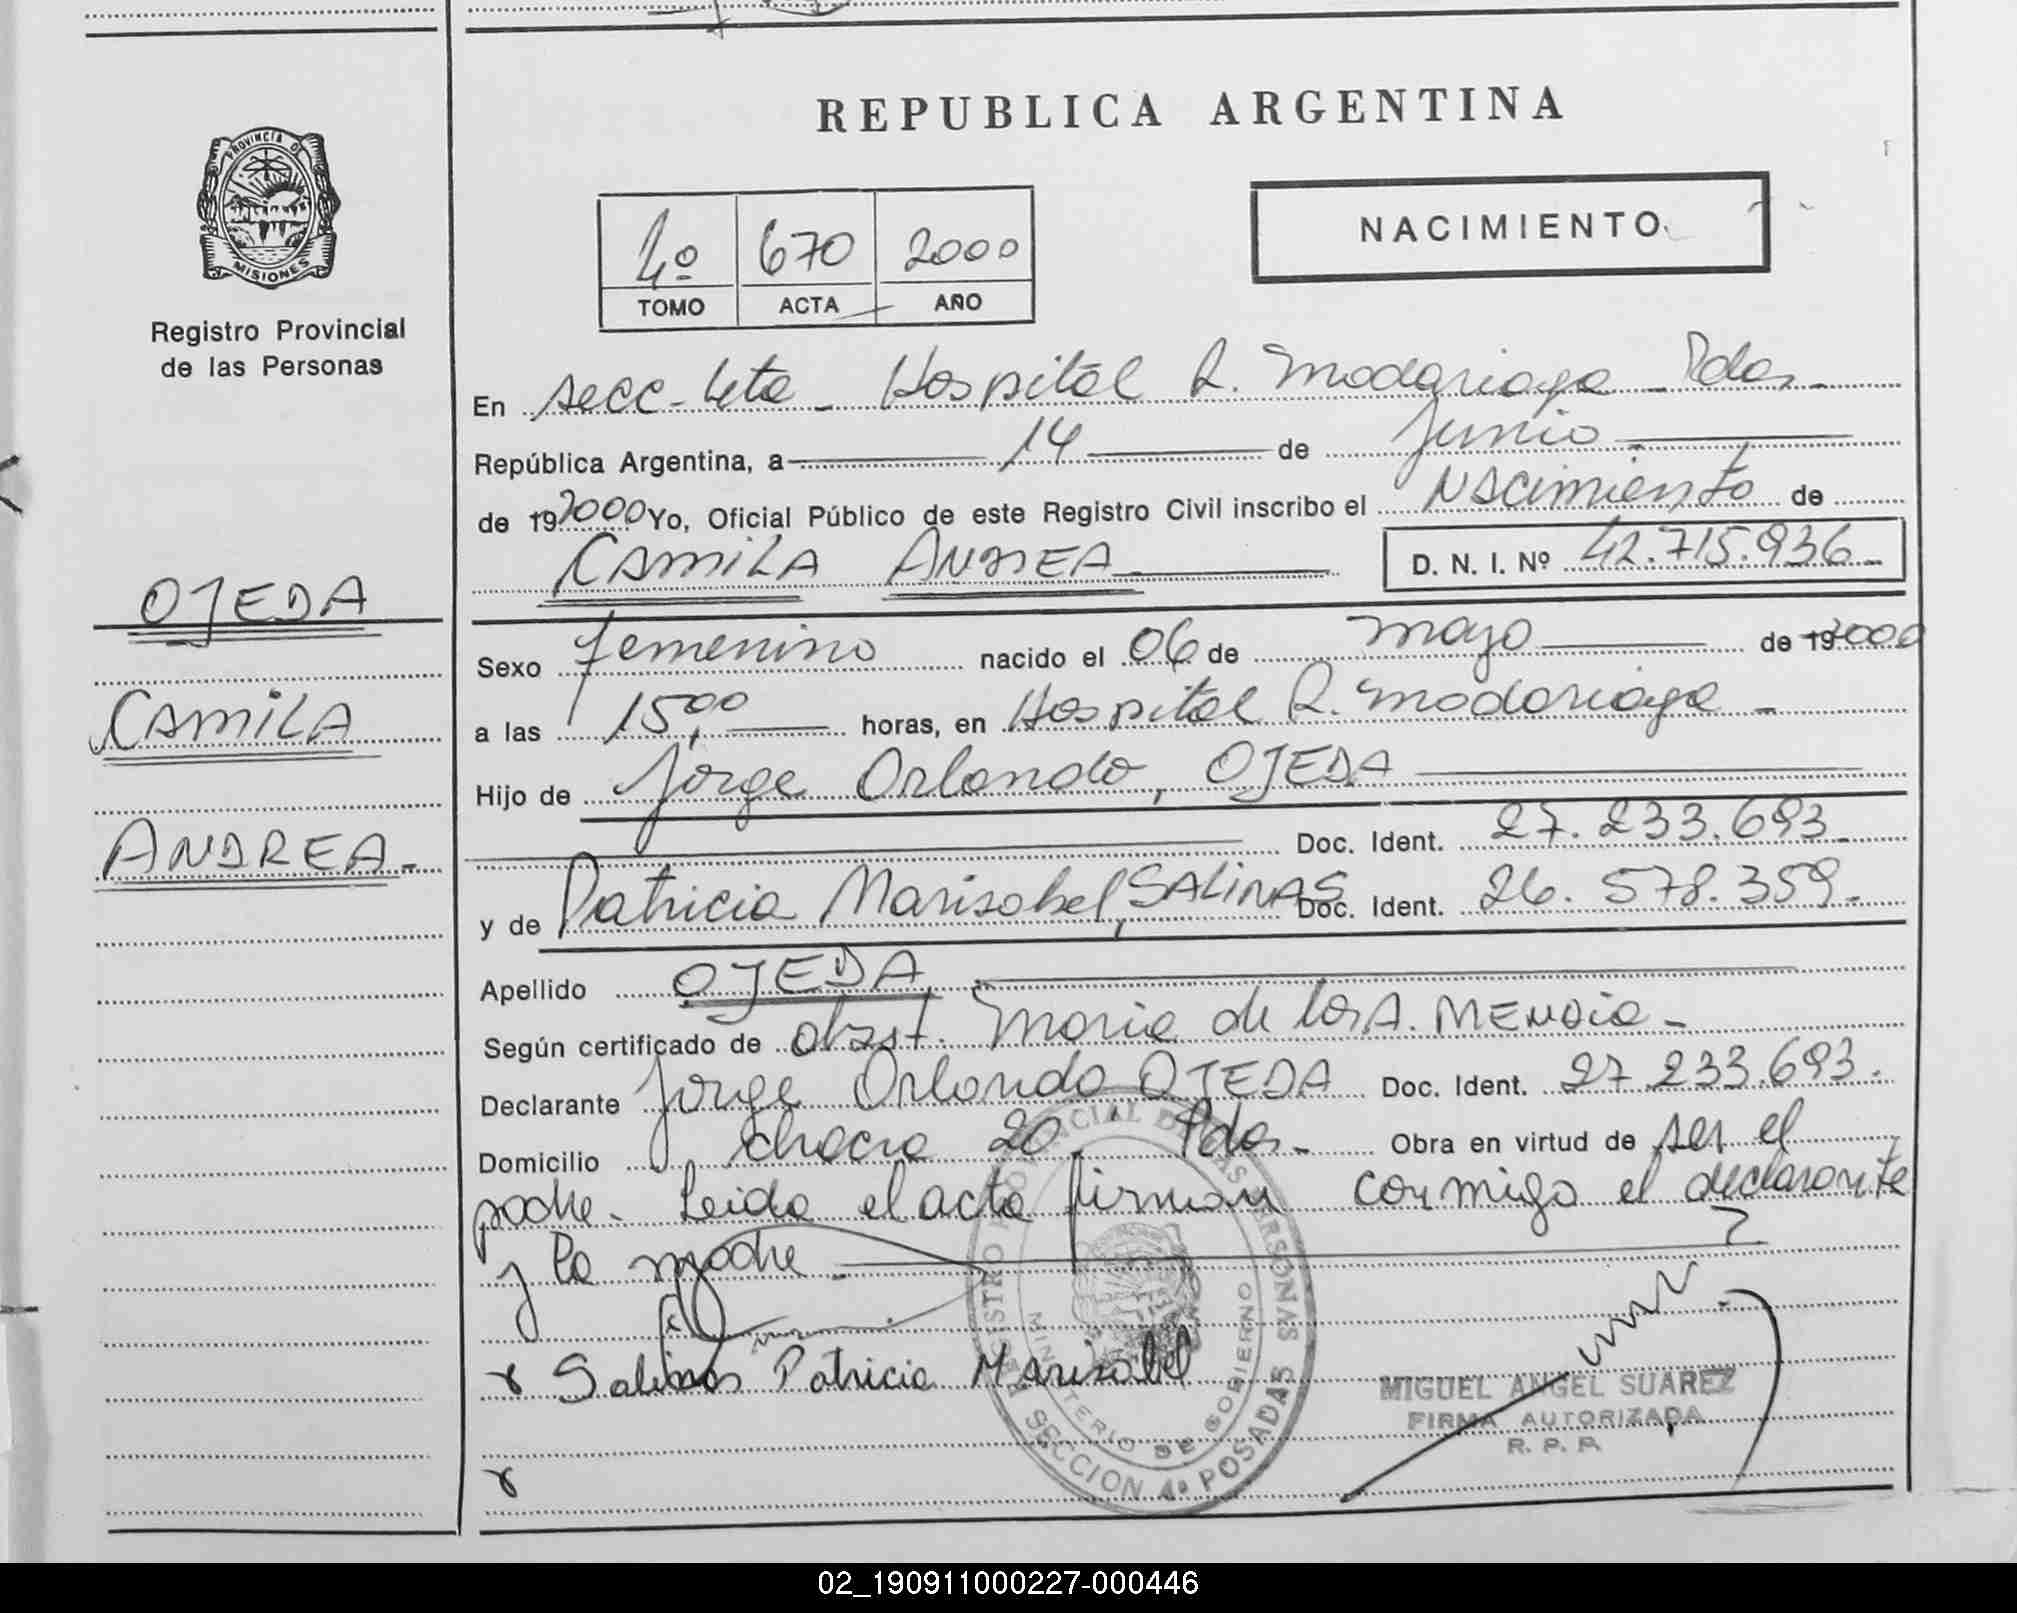 REPUBLICA ARGENTINA
PROVINCIA DE
MISIONES
Registro Provincial
de las Personas
4º 670 2000
TOMO ACTA AÑO
NACIMIENTO
En secc-4ta - Hospital R. Madariaga - Pdas -
República Argentina, a 14 de Junio
de 192000 Yo, Oficial Público de este Registro Civil inscribo el Nacimiento de
CAMILA ANDREA D. N. I. Nº 42.715.936-
OJEDA
CAMILA
ANDREA-
Sexo femenino nacido el 06 de mayo de 192000
a las 15,00 horas, en Hospital R. Madariaga -
Hijo de Jorge Orlando, OJEDA
Doc. Ident. 27.233.693-
y de Patricia Marisabel, SALINAS Doc. Ident. 26.578.359-
Apellido OJEDA
Según certificado de obst. Maria de los A. MENDIO -
Declarante Jorge Orlando OJEDA Doc. Ident. 27.233.693.
Domicilio chacra 20 Pdas- Obra en virtud de ser el
padre- Leida el acta firman conmigo el declarante
y la madre
Salinas Patricia Marisabel
REGISTRO PROVINCIAL DE LAS PERSONAS
MINISTERIO DE GOBIERNO
SECCION 4ª POSADAS
MIGUEL ANGEL SUAREZ
FIRMA AUTORIZADA
R. P. P.
02_190911000227-000446